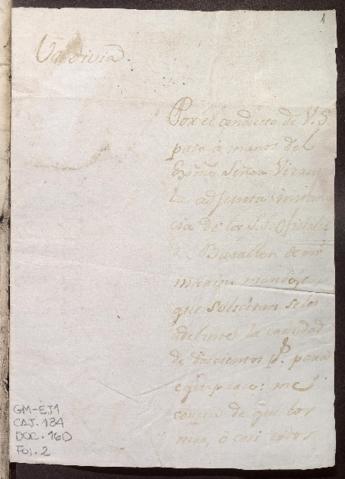 1
Valdivia.
Por el conducto de V.S
paso á manos del
Exmo Señor Virrey
la adjunta instan
cia de los S.S. Oficiales
Batallon de mi
mando
que solicitan se les
adelante la cantidad
de doscientos p.s para
equiparse: me
de que los
mas, ó casi todos
GM-EJ1
CAJ. 134
DOC. 160
Fol. 2